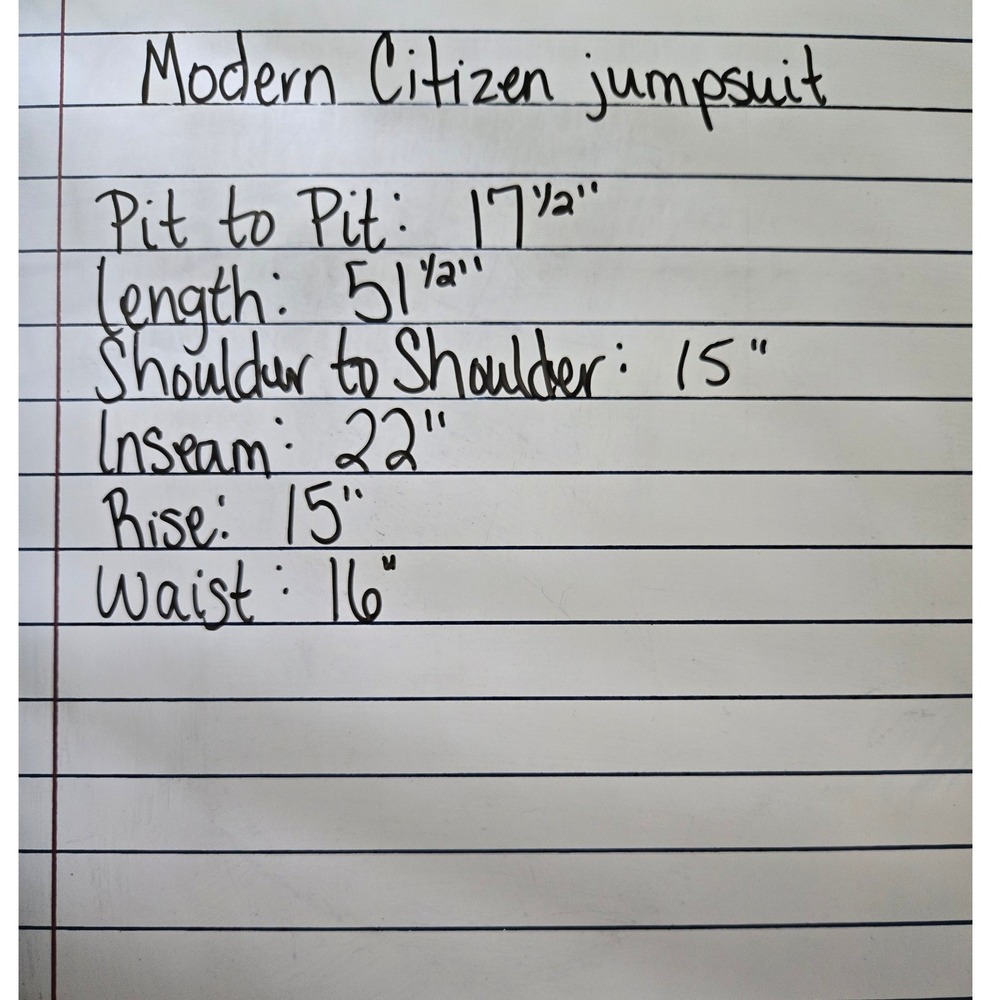 Modern Citizen jumpsuit
Pit to Pit: 17 1/2"
Length: 51 1/2"
Shoulder to Shoulder: 15"
Inseam: 22"
Rise: 15"
Waist: 16"